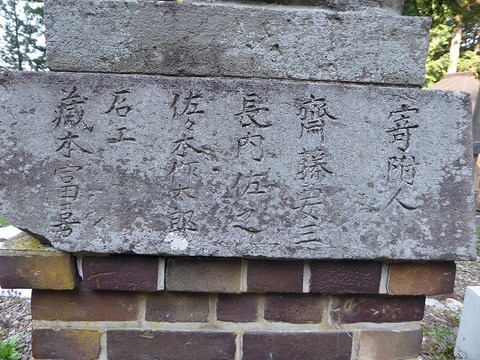 寄附人
齋藤安三
長内佐之
佐々木作太郎
石工
藏本富吾